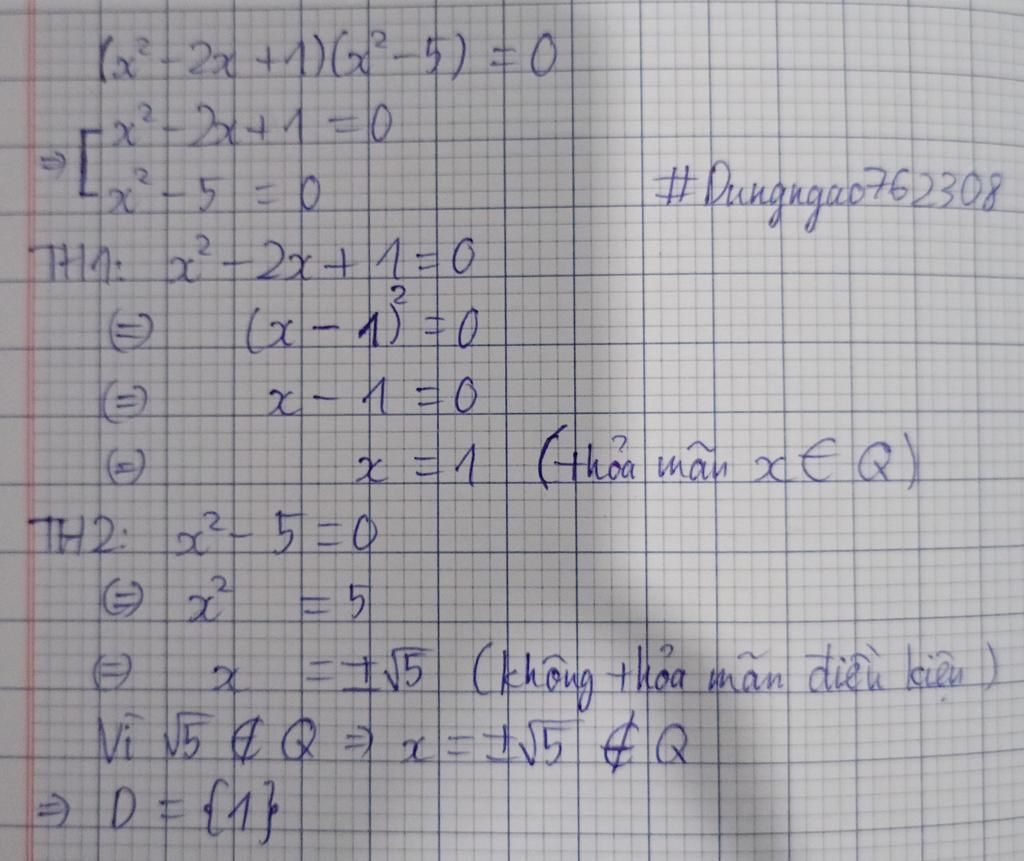 (x² - 2x + 1)(x² - 5) = 0
⇒ [ x² - 2x + 1 = 0
x² - 5 = 0
#Dungngao762308
TH1: x² - 2x + 1 = 0
⇔ (x - 1)² = 0
⇔ x - 1 = 0
⇔ x = 1 (thỏa mãn x ∈ Q)
TH2: x² - 5 = 0
⇔ x² = 5
⇔ x = ±√5 (không thỏa mãn điều kiện)
Vì √5 ∉ Q ⇒ x = ±√5 ∉ Q
⇒ D = {1}